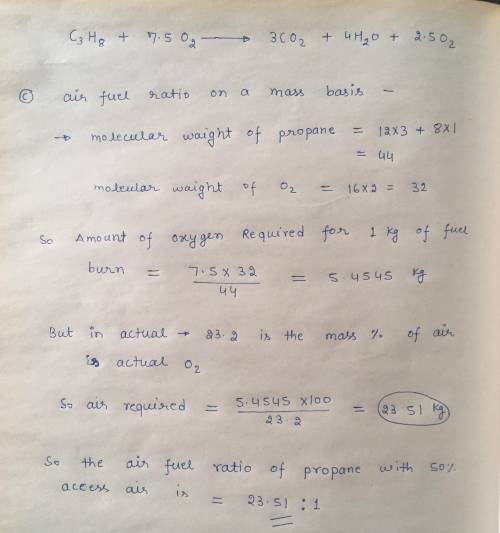 C3H8 + 7.5 O2 ⟶ 3CO2 + 4H2O + 2.5O2
Ⓒ air fuel ratio on a mass basis -
→ molecular waight of propane = 12×3 + 8×1
= 44
molecular waight of O2 = 16×2 = 32
So Amount of oxygen Required for 1 kg of fuel
burn = 7.5 × 32 / 44 = 5.4545 kg
But in actual → 23.2 is the mass % of air
is actual O2
So air required = 5.4545 ×100 / 23.2 = 23.51 kg
So the air fuel ratio of propane with 50%
access air is = 23.51 : 1